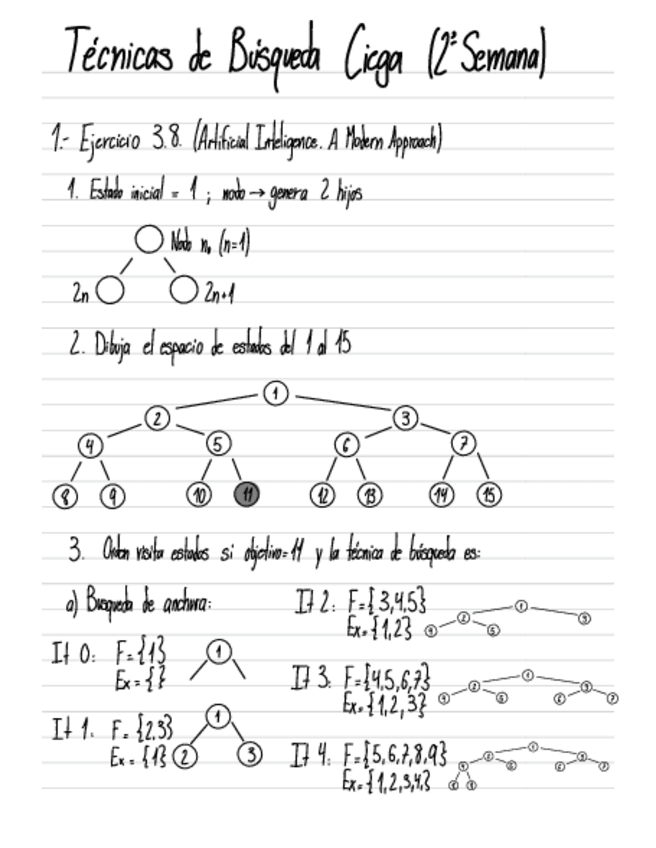 Técnicas de Búsqueda Ciega (2ª Semana)
1.- Ejercicio 3.8. (Artificial Inteligence. A Modern Approach)
1. Estado inicial = 1 ; nodo → genera 2 hijos
Nodo n, (n=1)
2n 2n+1
2. Dibuja el espacio de estados del 1 al 15
1
2 3
4 5 6 7
8 9 10 11 12 13 14 15
3. Orden visita estados si objetivo=11 y la técnica de búsqueda es:
a) Busqueda de anchura:
It 0: F={1}
Ex={}
1
It 1: F={2,3}
Ex={1}
1
2 3
It 2: F={3,4,5}
Ex={1,2}
1
2 3
4 5
It 3: F={4,5,6,7}
Ex={1,2,3}
1
2 3
4 5 6 7
It 4: F={5,6,7,8,9}
Ex={1,2,3,4}
1
2 3
4 5 6 7
8 9